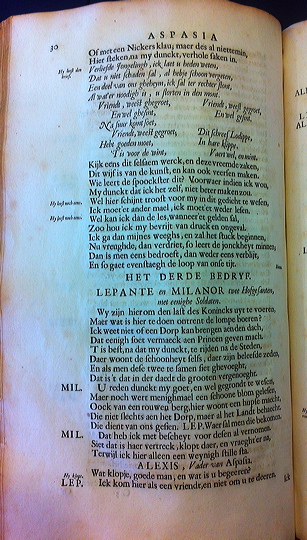 30 ASPASIA
Of met een Nickers klau, maer des al niettemin,
Hier steken, na my dunckt, verhole saken in.
Hy leest den brief.
Verliefde Jongelingh, ick laet u heden weten,
Dat u niet schaden sal, al hebje schoon vergeten,
Een deel van ons geheym, ick sal ter rechter stont,
Al wat'er noodigh is, u storten in den mont.
Vriendt, weest gegroet, Vriendt, weest gegroet,
En wel gesint. En wel gesint.
Na suur komt soet,
Vriendt, weest gegroet, Dit schreef Lodippe,
Hebt goeden moet, In haer klippe,
'T is voor de wint, Vaert wel, en mint.
Kijk eens dit seltsaem werck, en deze vreemde zaken,
Dit wijf is van de kunst, en kan ook veersen maken.
Wie leert de spoockster dit? Voorwaer indien ick wou,
My dunckt dat ick het zelf, niet beter maken zou.
Hy leest noch eens.
Wel hier schijnt troost voor my in dit gedicht te wesen,
Ick moet'er ander mael, ick moet'er weder lesen.
Hy leest noch eens.
Wel kan ick dan de les, wanneer'et gelden sal,
Zoo hou ick my bevrijt van druck en ongeval.
Ick ga dan mijnes weeghs, en zal het stuck beginnen,
Na vreughde, dan verdriet, so leert de jonckheyt minnen;
Dan is men eens bedroeft, dan weder eens verblijt,
En so gaet evenstaegh de loop van onse tijt.
HET DERDE BEDRYF.
LEPANTE en MILANOR twee Hofgesanten,
met eenighe Soldaten.
Wy zijn hierom den last des Konincks uyt te voeren,
Maer wat is hier te doen ontrent de lompe boeren?
Ick weet niet of een Dorp kan bergen aen den dach,
Dat eenigh soet vermaeck aen Princen geven mach.
T is best, na dat my dunckt, te rijden na de Steeden,
Daer woont de schoonheyt self, daer zijn beleefde zeden,
En als men dese twee te samen siet ghevoeght,
Dat is't dat in der daedt de grooten vergenoeght.
MIL. U reden dunckt my goet, en wel gegrondt te wesen,
Maer noch wert menighmael een schoone blom gelesen,
Oock van een rouwen bergh, hier woont een hupse maecht,
Die niet slechts aen het Dorp, maer al het Landt behaecht,
Die dient van ons gesien. LEP. Waer sal men die bekomen?
MIL. Dat heb ick met bescheyt voor desen al vernomen.
Siet dat is haer vertreck, klopt daer, en vraeght'er na,
Terwijl ick hier alleen een weynigh stille sta.
ALEXIS, Vader van Aspasia.
Hy klopt.
Wat klopje, goede man, en wat is u begeeren?
LEP. Ick kom hier als een vriendt, en niet om u te deeren.